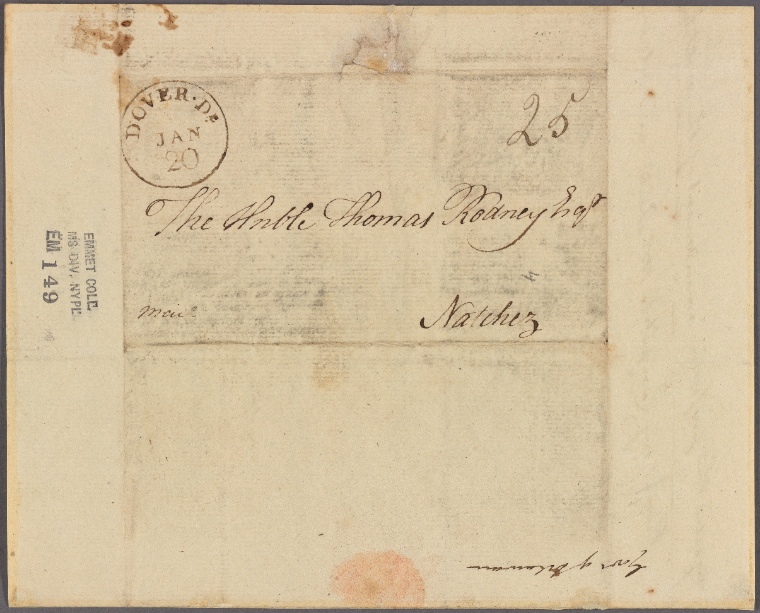 DOVER·De
JAN
20
25
The Hnble Thomas Rodney Esqr
4
mail
Natchez
EMMET COLL.
MS. DIV. NYPL
EM 149
Govr of Delaware